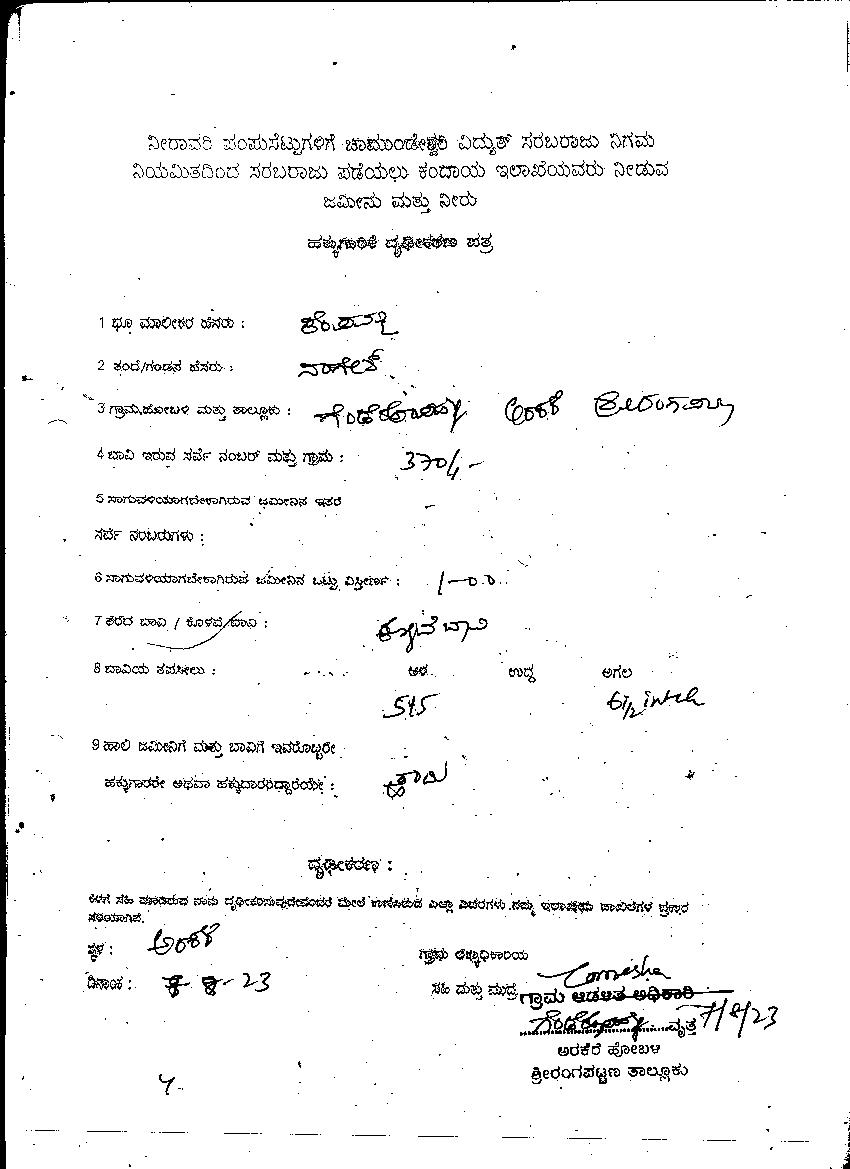 ನೀರಾವರಿ ಪಂಪುಸೆಟ್ಟುಗಳಿಗೆ ಚಾಮುಂಡೇಶ್ವರಿ ವಿದ್ಯುತ್ ಸರಬರಾಜು ನಿಗಮ
ನಿಯಮಿತದಿಂದ ಸರಬರಾಜು ಪಡೆಯಲು ಕಂದಾಯ ಇಲಾಖೆಯವರು ನೀಡುವ
ಜಮೀನು ಮತ್ತು ನೀರು
ಹಕ್ಕುಗಾರಿಕೆ ದೃಢೀಕರಣ ಪತ್ರ
1 ಭೂ ಮಾಲೀಕರ ಹೆಸರು :
2 ತಂದೆ/ಗಂಡನ ಹೆಸರು : ನಾಗೇಶ್
3 ಗ್ರಾಮ,ಹೋಬಳಿ ಮತ್ತು ತಾಲ್ಲೂಕು : ಅರಕೆರೆ ಶ್ರೀರಂಗಪಟ್ಟಣ
4 ಬಾವಿ ಇರುವ ಸರ್ವೆ ನಂಬರ್ ಮತ್ತು ಗ್ರಾಮ : 370/-
5 ಸಾಗುವಳಿಯಾಗಬೇಕಾಗಿರುವ ಜಮೀನಿನ ಇತರೆ
ಸರ್ವೆ ನಂಬರುಗಳು :
6 ಸಾಗುವಳಿಯಾಗಬೇಕಾಗಿರುವ ಜಮೀನಿನ ಒಟ್ಟು ವಿಸ್ತೀರ್ಣ : 1-00
7 ತೆರೆದ ಬಾವಿ / ಕೊಳವೆ ಬಾವಿ : ಕೊಳವೆ ಬಾವಿ
8 ಬಾವಿಯ ತಪಸೀಲು : ಆಳ ಉದ್ದ ಅಗಲ
545 6 1/2 intch
9 ಹಾಲಿ ಜಮೀನಿಗೆ ಮತ್ತು ಬಾವಿಗೆ ಇವರೊಬ್ಬರೇ
ಹಕ್ಕುಗಾರರೇ ಅಥವಾ ಹಕ್ಕುದಾರರಿದ್ದಾರೆಯೇ :
ದೃಢೀಕರಣ :
ಕೆಳಗೆ ಸಹಿ ಮಾಡಿರುವ ನಾನು ದೃಢೀಕರಿಸುವುದೇನೆಂದರೆ ಮೇಲೆ ಕಾಣಿಸಿರುವ ಎಲ್ಲಾ ವಿವರಗಳು ನಮ್ಮ ಇಲಾಖೆಯ ದಾಖಲೆಗಳ ಪ್ರಕಾರ
ಸರಿಯಾಗಿವೆ.
ಸ್ಥಳ : ಅರಕೆರೆ
ಗ್ರಾಮ ಲೆಕ್ಕಾಧಿಕಾರಿಯ
ದಿನಾಂಕ : 8-8-23
ಸಹಿ ಮತ್ತು ಮುದ್ರೆ
ಗ್ರಾಮ ಆಡಳಿತ ಅಧಿಕಾರಿ
ವೃತ್ತ 7/8/23
ಅರಕೆರೆ ಹೋಬಳಿ
ಶ್ರೀರಂಗಪಟ್ಟಣ ತಾಲ್ಲೂಕು